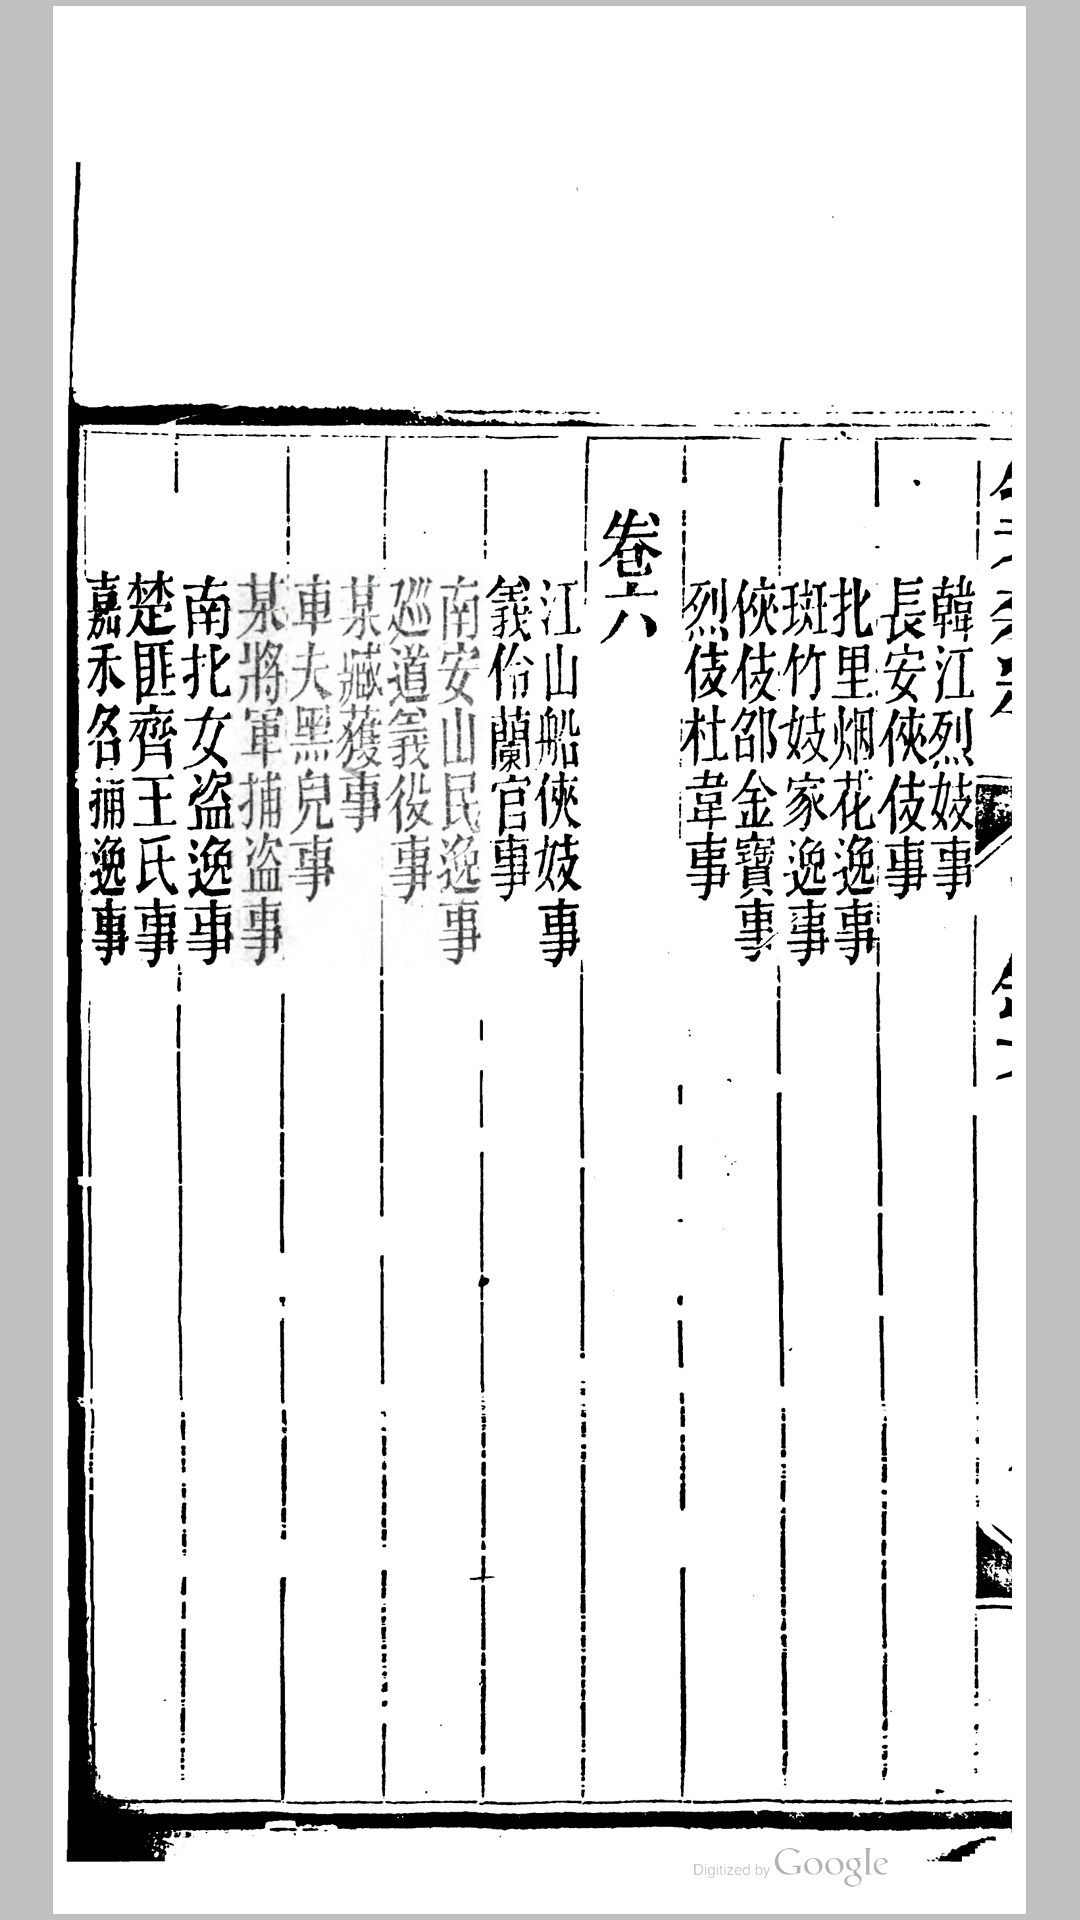 韓江烈妓事
長安俠伎事
北里烟花逸事
斑竹妓家逸事
俠伎邵金寶事
烈伎杜韋事
卷六
江山船俠妓事
義伶蘭官事
南安山民逸事
廵道義役事
某藏獲事
車夫黑兒事
某將軍捕盜事
南北女盜逸事
楚匪齊王氏事
嘉禾名捕逸事
Digitized by Google